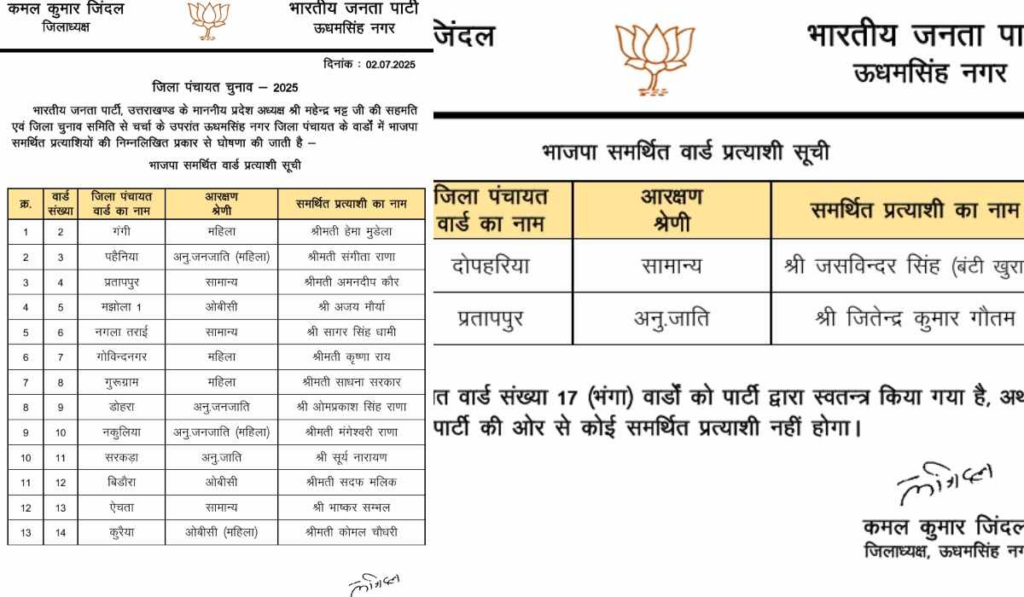 कमल कुमार जिंदल
जिलाध्यक्ष
भारतीय जनता पार्टी
ऊधमसिंह नगर
दिनांक : 02.07.2025
जिला पंचायत चुनाव – 2025
भारतीय जनता पार्टी, उत्तराखण्ड के माननीय प्रदेश अध्यक्ष श्री महेन्द्र भट्ट जी की सहमति
एवं जिला चुनाव समिति से चर्चा के उपरांत ऊधमसिंह नगर जिला पंचायत के वार्डो में भाजपा
समर्थित प्रत्याशियों की निम्नलिखित प्रकार से घोषणा की जाती है –
भाजपा समर्थित वार्ड प्रत्याशी सूची
क्र. वार्ड संख्या जिला पंचायत वार्ड का नाम आरक्षण श्रेणी समर्थित प्रत्याशी का नाम
1 2 गंगी महिला श्रीमती हेमा मुडेला
2 3 पहैनिया अनु.जनजाति (महिला) श्रीमती संगीता राणा
3 4 प्रतापपुर सामान्य श्रीमती अमनदीप कौर
4 5 मझोला 1 ओबीसी श्री अजय मौर्या
5 6 नगला तराई सामान्य श्री सागर सिंह धामी
6 7 गोविन्दनगर महिला श्रीमती कृष्णा राय
7 8 गुरूग्राम महिला श्रीमती साधना सरकार
8 9 डोहरा अनु.जनजाति श्री ओमप्रकाश सिंह राणा
9 10 नकुलिया अनु.जनजाति (महिला) श्रीमती मंगेश्वरी राणा
10 11 सरकड़ा अनु.जाति श्री सूर्य नारायण
11 12 बिडौरा ओबीसी श्रीमती सदफ मलिक
12 13 ऐचता सामान्य श्री भाष्कर सम्भल
13 14 कुरैया ओबीसी (महिला) श्रीमती कोमल चौधरी
जिंदल
भारतीय जनता पा
ऊधमसिंह नगर
भाजपा समर्थित वार्ड प्रत्याशी सूची
जिला पंचायत वार्ड का नाम आरक्षण श्रेणी समर्थित प्रत्याशी का नाम
दोपहरिया सामान्य श्री जसविन्दर सिंह (बंटी खुरा
प्रतापपुर अनु.जाति श्री जितेन्द्र कुमार गौतम
त वार्ड संख्या 17 (भंगा) वार्डों को पार्टी द्वारा स्वतन्त्र किया गया है, अथ
पार्टी की ओर से कोई समर्थित प्रत्याशी नहीं होगा।
कमल कुमार जिंदल
जिलाध्यक्ष, ऊधमसिंह नग